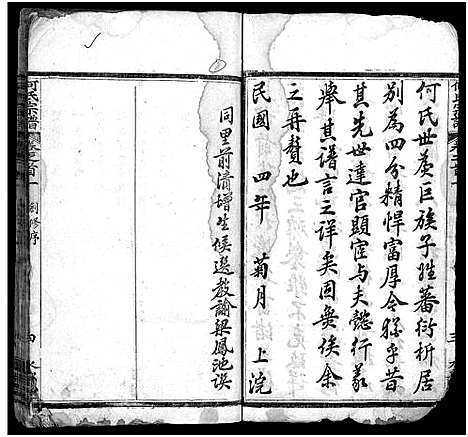 何氏世族巨族子姓蕃衍析居
別為四分精悍富厚令
其先世達官顯宦與夫懿行義
舉其譜言之詳矣固無俟余
之再贅也
民國四年菊月上浣
同里前清增生候選教諭梁鳳池譔
何氏宗譜
卷首一
創修序